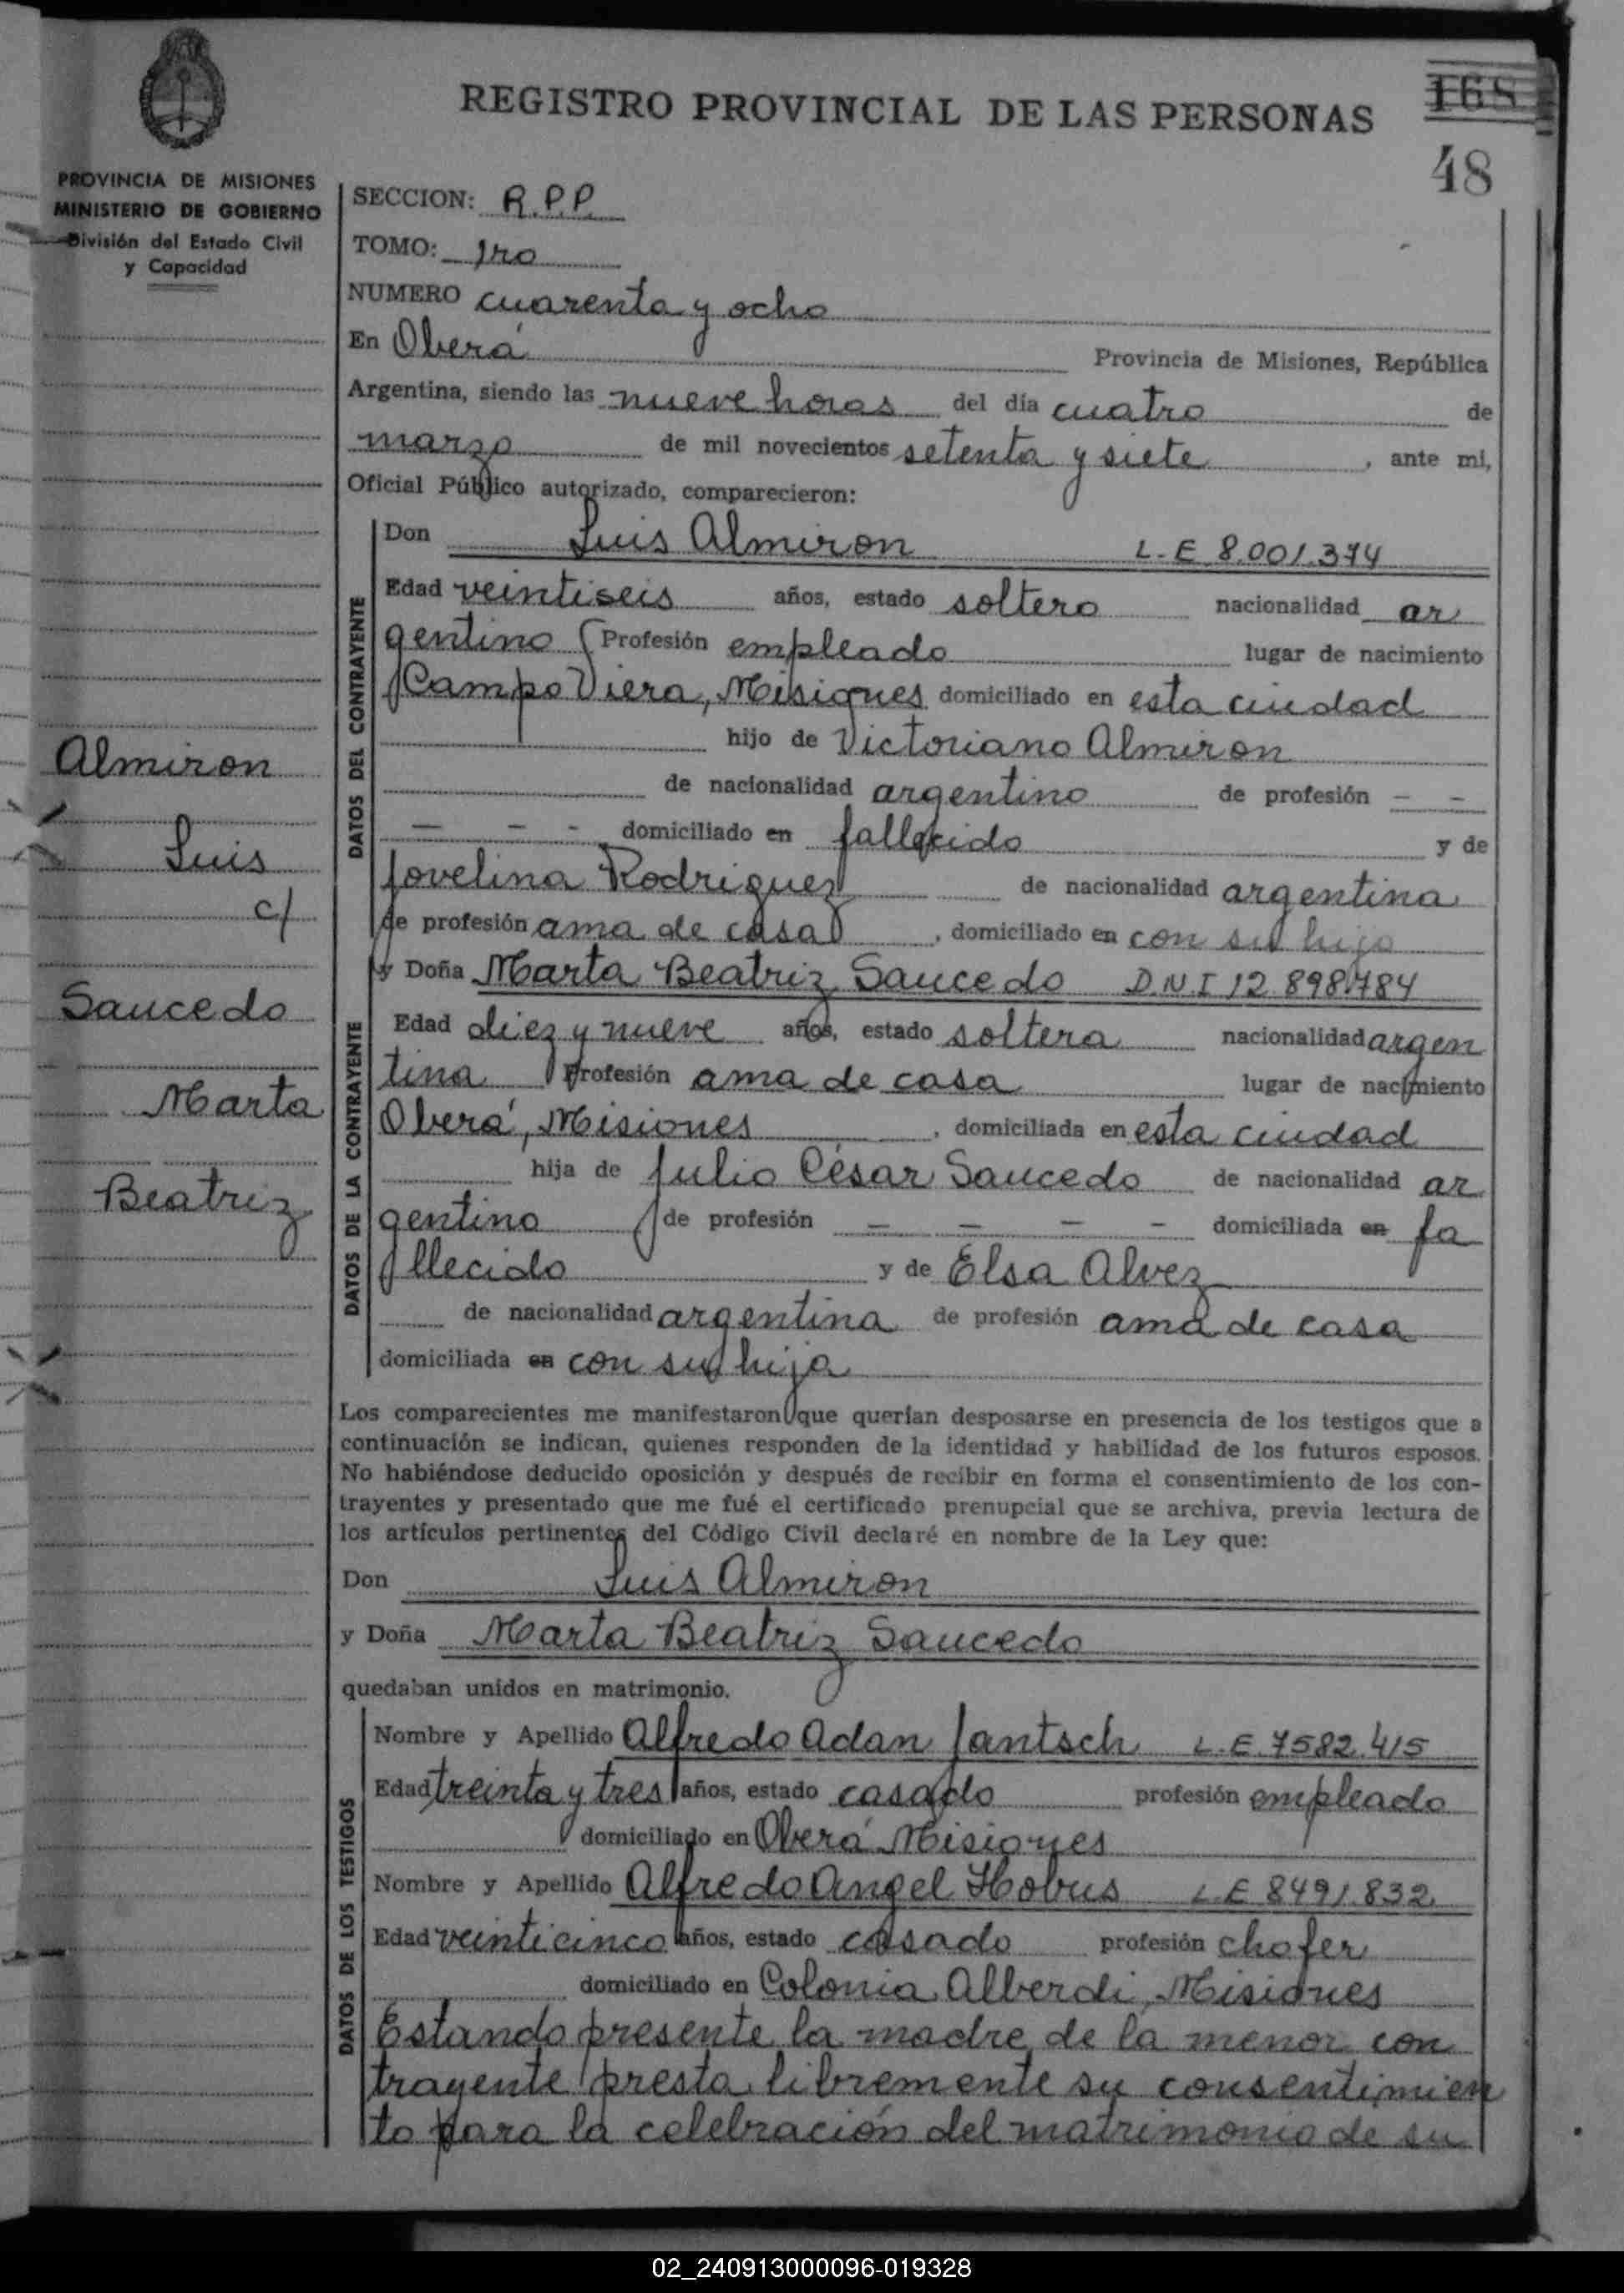 REGISTRO PROVINCIAL DE LAS PERSONAS
168
48
PROVINCIA DE MISIONES
MINISTERIO DE GOBIERNO
División del Estado Civil
y Capacidad
SECCION: R.P.P.
TOMO: 1ro
NUMERO cuarenta y ocho
En Oberá Provincia de Misiones, República
Argentina, siendo las nueve horas del día cuatro de
marzo de mil novecientos setenta y siete, ante mi,
Oficial Público autorizado, comparecieron:
DATOS DEL CONTRAYENTE
Don Luis Almiron L.E 8.001.374
Edad veintiseis años, estado soltero nacionalidad ar
gentino Profesión empleado lugar de nacimiento
Campo Viera, Misiones domiciliado en esta ciudad
hijo de Victoriano Almiron
de nacionalidad argentino de profesión - -
- - - domiciliado en fallecido y de
Jovelina Rodriguez de nacionalidad argentina
de profesión ama de casa, domiciliado en con su hijo
DATOS DE LA CONTRAYENTE
y Doña Marta Beatriz Saucedo D.N.I 12.898.784
Edad diez y nueve años, estado soltera nacionalidad argen
tina Profesión ama de casa lugar de nacimiento
Oberá, Misiones, domiciliada en esta ciudad
hija de Julio César Saucedo de nacionalidad ar
gentino de profesión - - - - domiciliada en fa
llecido y de Elsa Alvez
de nacionalidad argentina de profesión ama de casa
domiciliada en con su hija
Almiron
Luis
c/
Saucedo
Marta
Beatriz
Los comparecientes me manifestaron que querían desposarse en presencia de los testigos que a
continuación se indican, quienes responden de la identidad y habilidad de los futuros esposos.
No habiéndose deducido oposición y después de recibir en forma el consentimiento de los con-
trayentes y presentado que me fué el certificado prenupcial que se archiva, previa lectura de
los artículos pertinentes del Código Civil declaré en nombre de la Ley que:
Don Luis Almiron
y Doña Marta Beatriz Saucedo
quedaban unidos en matrimonio.
DATOS DE LOS TESTIGOS
Nombre y Apellido Alfredo Adan Jantsch L.E. 7582.415
Edad treinta y tres años, estado casado profesión empleado
domiciliado en Oberá Misiones
Nombre y Apellido Alfredo Angel Hobus L.E 8491.832
Edad veinticinco años, estado casado profesión chofer
domiciliado en Colonia Alberdi, Misiones
Estando presente la madre de la menor con
trayente presta libremente su consentimien
to para la celebración del matrimonio de su
02_240913000096-019328